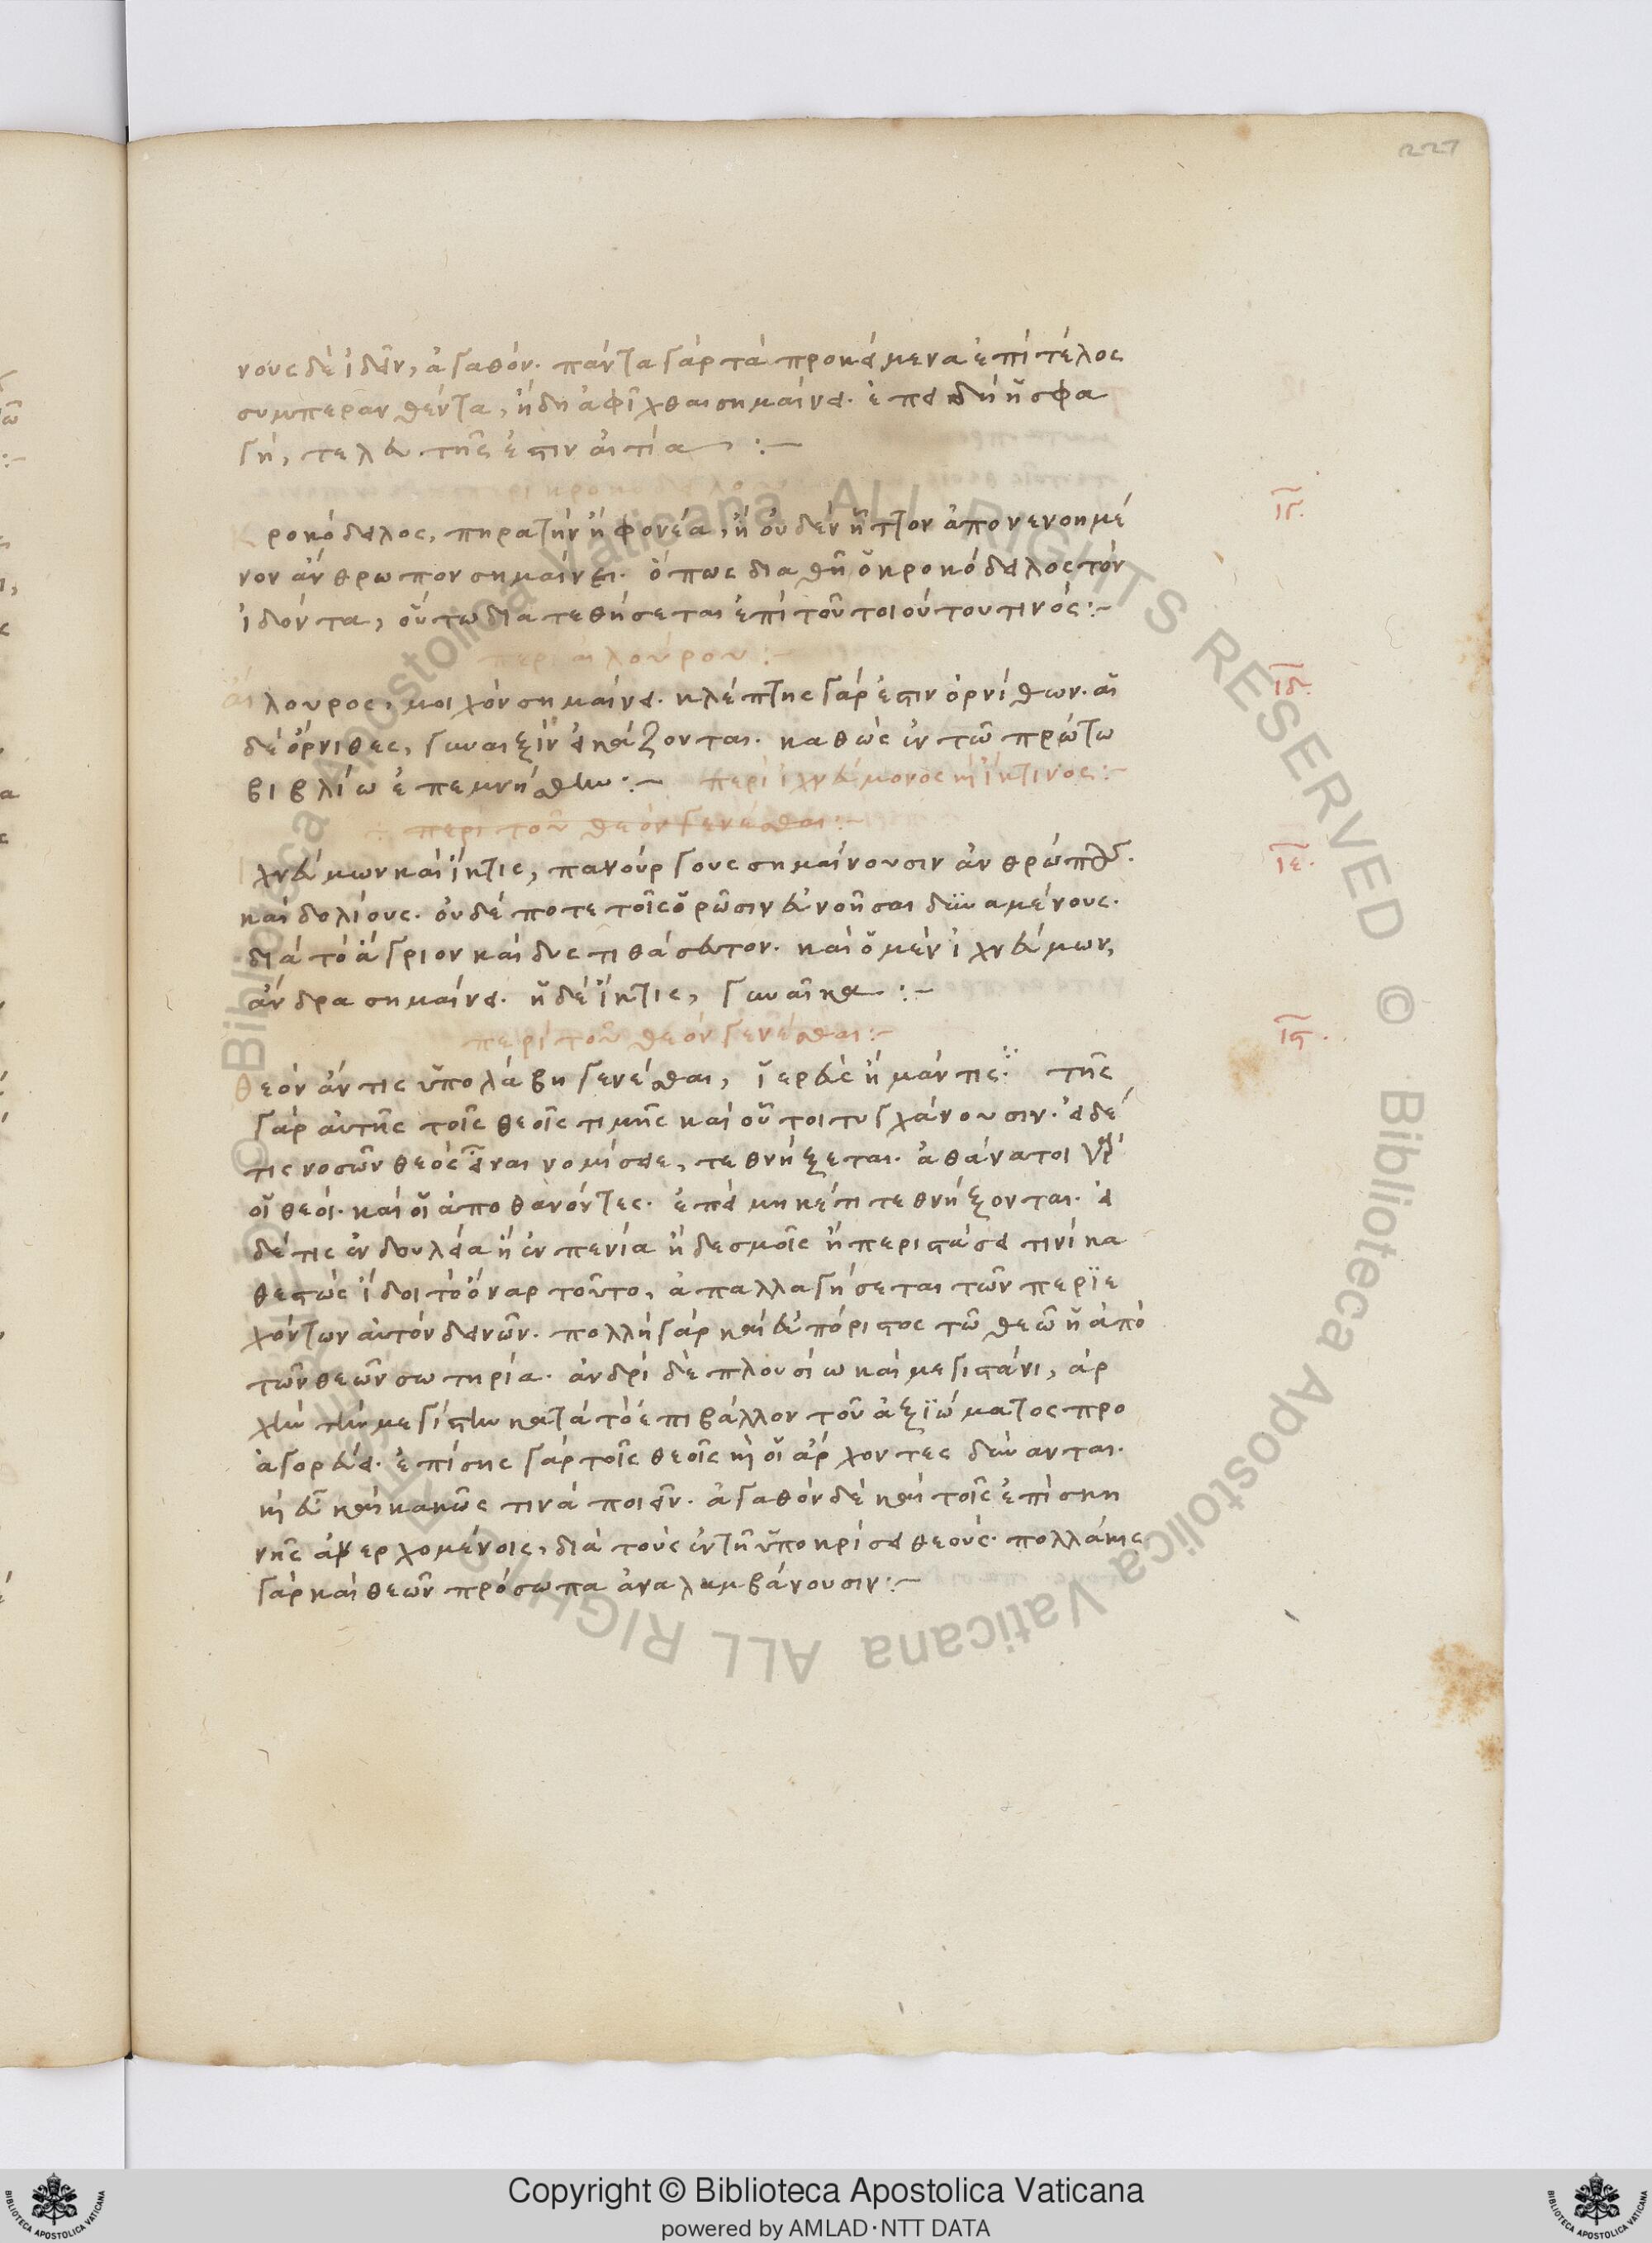 227
νους δὲ ἰδεῖν, ἀγαθόν. πάντα γὰρ τὰ προκείμενα ἐπὶ τέλος
συμπερανθέντα, ἤδη ἀφῖχθαι σημαίνει. ἐπειδὴ ἡ σφα
γὴ, τελευτῆς ἐστιν αἰτία :~
ιγ.
Κροκόδειλος, πειρατὴν ἢ φονέα, ἢ οὐδὲν ἧττον ἀπονενοημέ
νον ἄνθρωπον σημαίνει. ὅπως διαθῇ ὁ κροκόδειλος τὸν
ἰδόντα, οὕτω διατεθήσεται ἐπὶ τοῦ τοιούτου τινός :~
περὶ αἰλούρου :~
ιδ.
αἴλουρος, μοιχὸν σημαίνει. κλέπτης γάρ ἐστιν ὀρνίθων. αἱ
δὲ ὄρνιθες, γυναιξὶν εἰκάζονται. καθὼς ἐν τῶ πρώτω
βιβλίω ἐπεμνήσθην :~ περὶ ἰχνεύμονος κ(αὶ) ἴκτινος :~
περὶ τοῦ θεὸν γενέσθαι :~
ιε.
Ἰχνεύμων καὶ ἴκτις, πανούργους σημαίνουσιν ἀνθρώπους.
καὶ δολίους. οὐδέποτε τοῖς ὁρῶσιν εὐνοῆσαι δυναμένους.
διὰ τὸ ἄγριον καὶ δυστιθάσευτον. καὶ ὁ μὲν ἰχνεύμων,
ἄνδρα σημαίνει. ἡ δὲ ἴκτις, γυναῖκα :~
περὶ τοῦ θεὸν γενέσθαι :~
ιϛ.
Θεὸν ἄν τις ὑπολάβη γενέσθαι, ἱερεὺς ἢ μάντις. τῆς
γὰρ αὐτῆς τοῖς θεοῖς τιμῆς καὶ οὗτοι τυγχάνουσιν. εἰ δέ
τις νοσῶν θεὸς εἶναι νομίσειε, τεθνήξεται. ἀθάνατοι γὰρ
οἱ θεοί. καὶ οἱ ἀποθανόντες. ἐπεὶ μηκέτι τεθνήξονται. εἰ
δέ τις ἐν δουλεία ἢ ἐν πενία ἢ δεσμοῖς ἢ περιστάσει τινὶ κα
θεστὼς ἴδοι τὸ ὄναρ τοῦτο, ἀπαλλαγήσεται τῶν περϊε
χόντων αὐτὸν δεινῶν. πολλὴ γὰρ καὶ εὐπόριστος τῶ θεῶ ἡ ἀπὸ
τῶν θεῶν σωτηρία. ἀνδρὶ δὲ πλουσίω καὶ μεγιστάνι, ἀρ
χὴν τὴν μεγίστην κατὰ τὸ ἐπιβάλλον τοῦ ἀξϊώματος προ
αγορεύει. ἐπίσης γὰρ τοῖς θεοῖς κ(αὶ) οἱ ἄρχοντες δύνανται.
κ(αὶ) εὖ καὶ κακῶς τινὰ ποιεῖν. ἀγαθὸν δὲ καὶ τοῖς ἐπὶ σκη
νῆς ἀνερχομένοις, διὰ τοὺς ἐν τῆ ὑποκρίσει θεούς. πολλάκις
γὰρ καὶ θεῶν πρόσωπα ἀναλαμβάνουσιν :~
© Biblioteca Apostolica Vaticana ALL RIGHTS RESERVED © Biblioteca Apostolica Vaticana ALL RIGHTS RESERVED
Copyright © Biblioteca Apostolica Vaticana
powered by AMLAD·NTT DATA
BIBLIOTECA APOSTOLICA VATICANA
BIBLIOTECA APOSTOLICA VATICANA